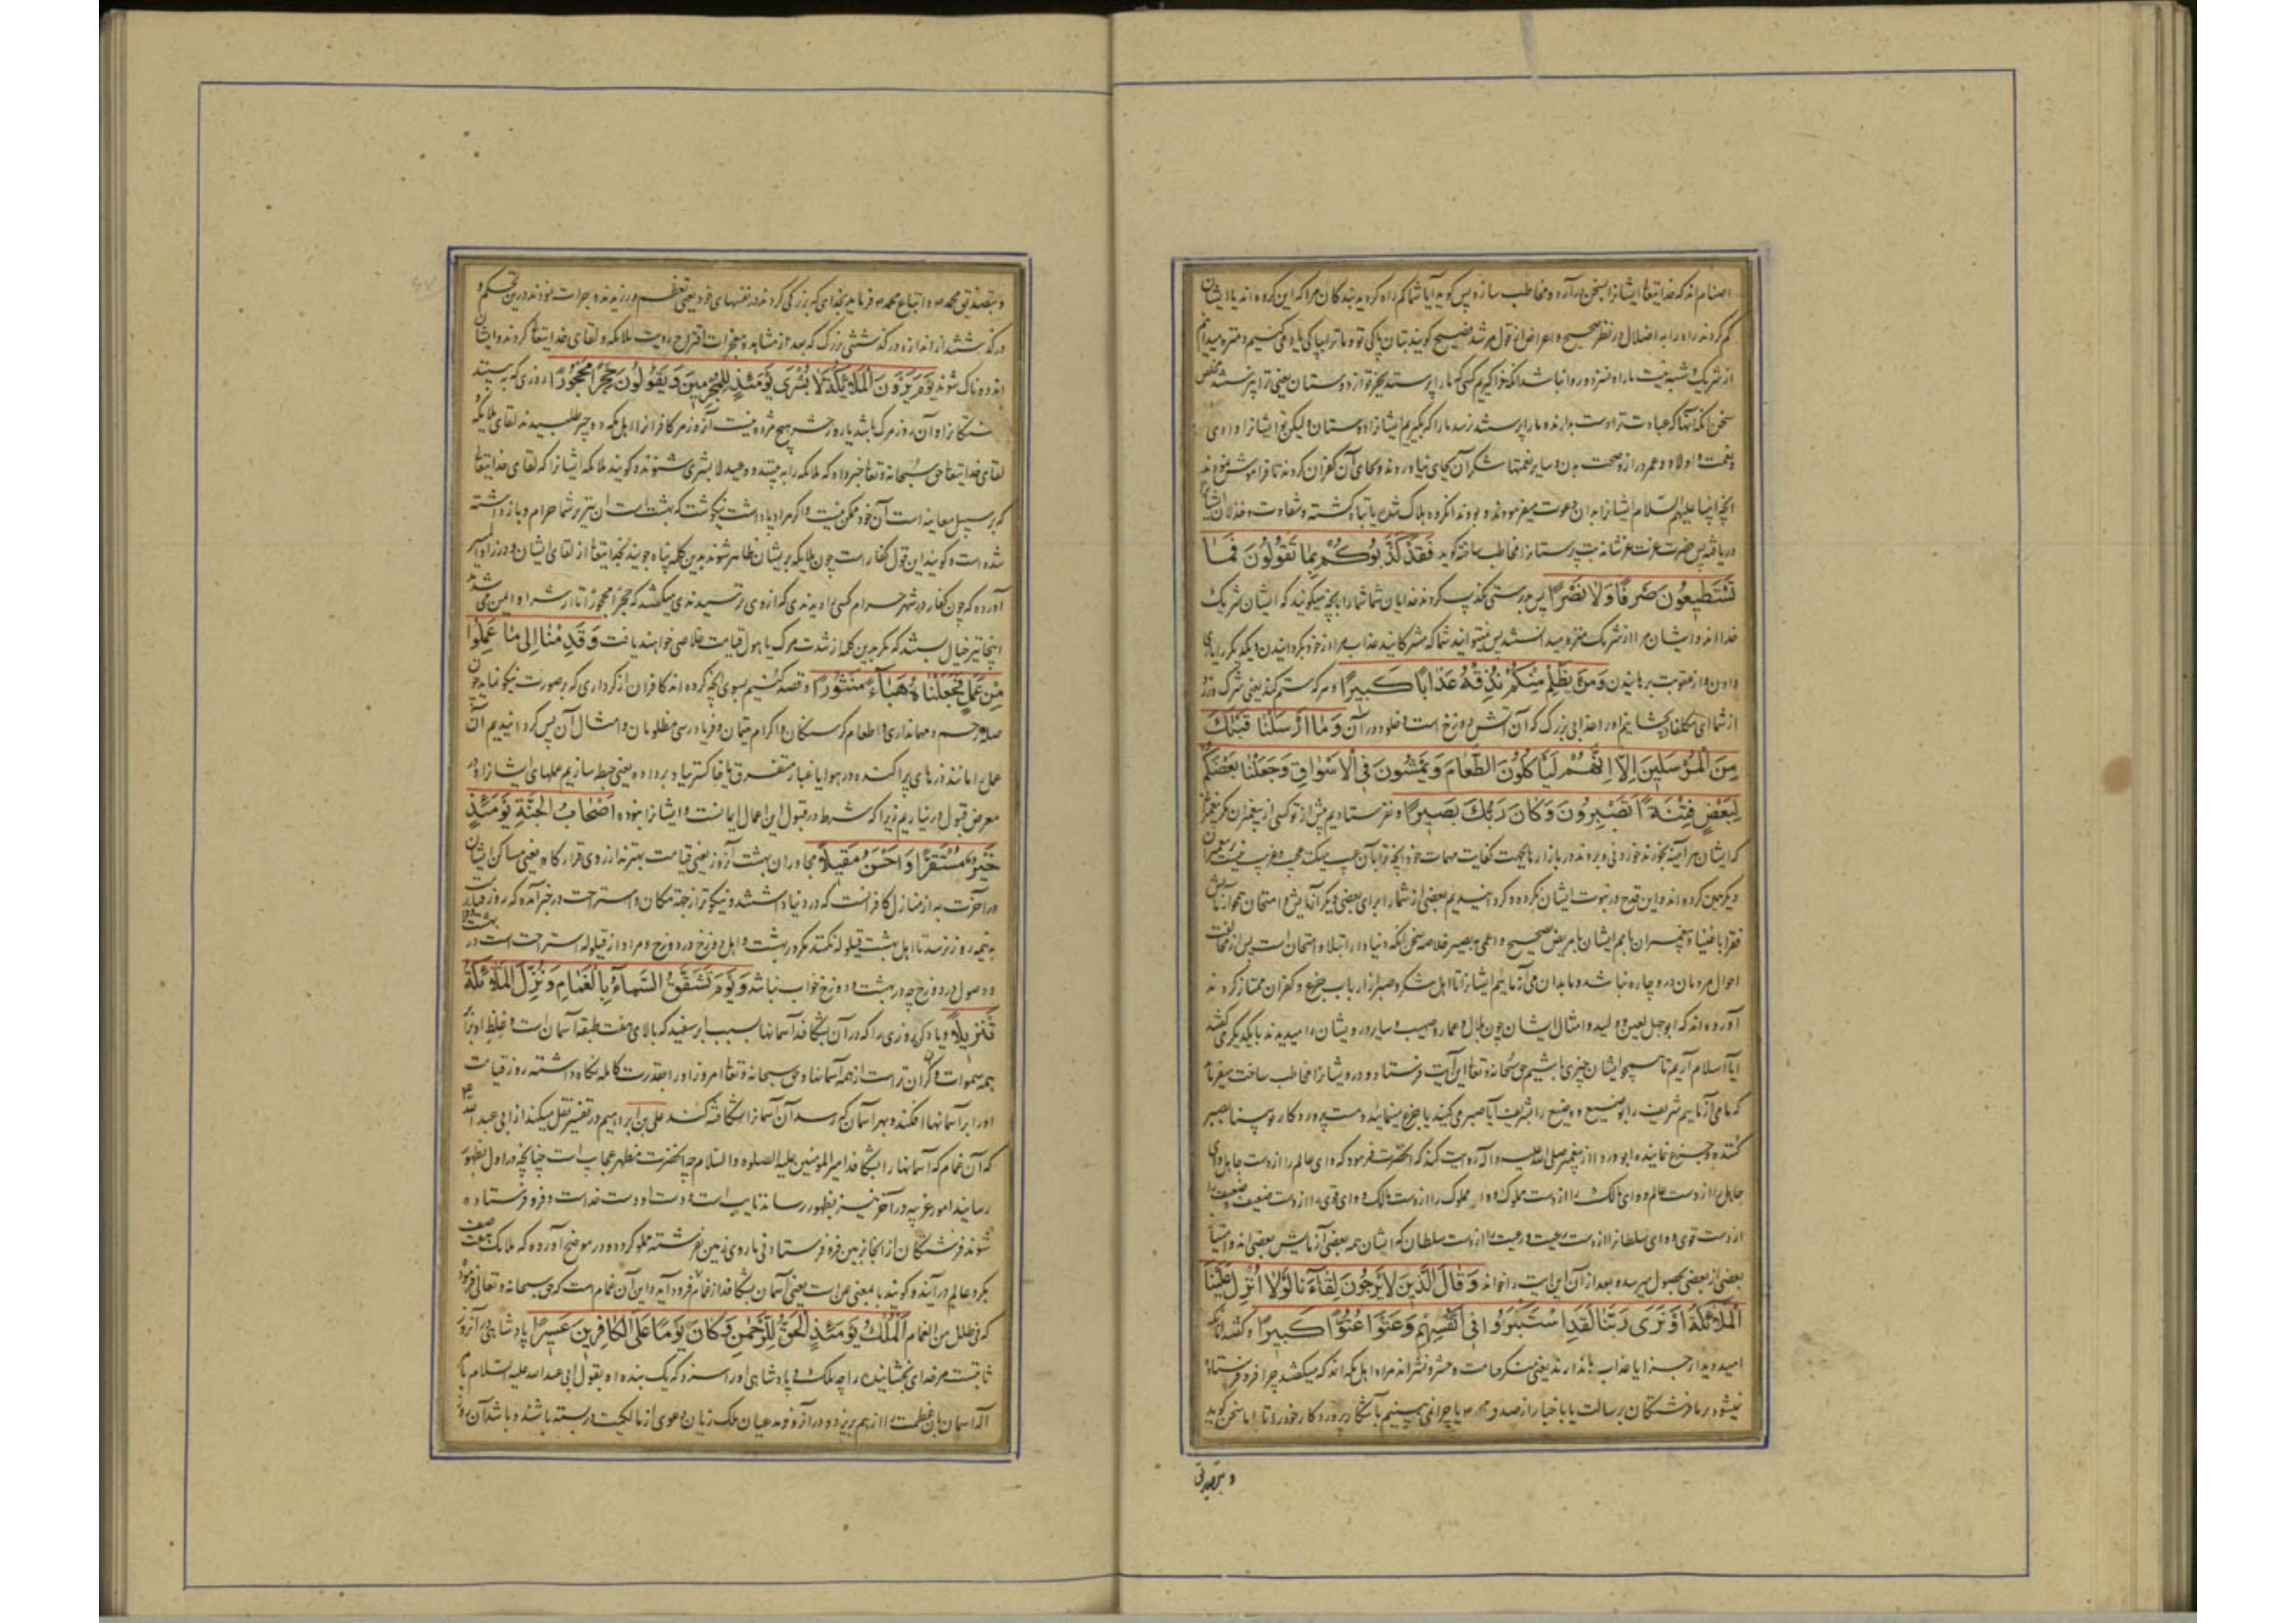 اصنام اند که خدایتعالی ایشانرا بسخن درآرد و مخاطب سازد پس گوید آیا شما گم راه کردید بندگان مرا که این گروه اند یا ایشان
گم کردند راه را به اخلال در نظر صحیح و اعراض از قول مرشد نصیح گویند بتان پاکی تو ما ترا بپاکی یاد می کنیم و منزه میدانیم
از شریک و شبیه نیست ما را و نسزد و روا نباشد آنکه فرا گیریم کسی که ما را پرستد بجز تو از دوستان یعنی ترا پرستند مخلص
سخن آنکه آنها که عبادت ترا دوست دارند و ما را پرستند نرسد ما را که بگیریم ایشانرا دوستان و لیکن تو ایشانرا دادی
نعمت و اولاد و عمر دراز و صحت بدن و سایر نعمتها شکر آن بجای نیاوردند و بجای آن کفران کردند تا فراموش نمودند
آنچه انبیا علیهم السلام ایشانرا بدان دعوت میفرمودند و بودند آن گروه هلاک شده یا تباه گشته و شقاوت و خذلان ایشانرا
دریافته پس حضرت عزت عز شانه بت پرستانرا مخاطب ساخته گوید فَقَدْ كَذَّبُوكُمْ بِمَا تَقُولُونَ فَمَا
تَسْتَطِيعُونَ صَرْفًا وَلَا نَصْرًا پس بدرستی تکذیب کردند خدایان شما شما را بآنچه میگوئید که ایشان شریک
خدااند و ایشان مرا از شریک منزه میدانستند پس نمیتوانید شما که مشرکانید عذاب مرا از خود بگردانیدن و یکدیگر را یاری
دادن و از عقوبت برهانیدن وَمَنْ يَظْلِمْ مِنْكُمْ نُذِقْهُ عَذَابًا كَبِيرًا و هر که ستم کند یعنی شرک ورزد
از شما ای مکلفان بچشانیم او را عذابی بزرگ که آن آتش دوزخ است و خلود در آن وَمَا أَرْسَلْنَا قَبْلَكَ
مِنَ الْمُرْسَلِينَ إِلَّا إِنَّهُمْ لَيَأْكُلُونَ الطَّعَامَ وَيَمْشُونَ فِي الْأَسْوَاقِ وَجَعَلْنَا بَعْضَكُمْ
لِبَعْضٍ فِتْنَةً أَتَصْبِرُونَ وَكَانَ رَبُّكَ بَصِيرًا و نفرستادیم پیش از تو کسی از پیغمبران مگر پیغمبر
که ایشان هر آینه بخورند خوردنی و بروند در بازارها بجهت کفایت مهمات خود آنچه ترا بآن عیب میکنند عجب و غریب نیست پیغمبران
دیگر همین کرده اند و این قدح در نبوت ایشان نکرده و گردانیدیم بعضی از شما را برای بعضی دیگر آزمایش و امتحان همچو آزمایش
فقرا باغنیا و پیغمبران بامم ایشان با مریض صحیح و اعمی به بصیر خلاصه سخن آنکه دنیا دار ابتلا و امتحان است پس از مخالفت
احوال مردمان درو چاره نباشد و ما بدان می آزماییم ایشانرا تا اهل شکر و صبر را از ارباب جزع و کفران ممتاز کردند
آورده اند که ابوجهل لعین و ولید و امثال ایشان چون بلال و عمار و صهیب و سایر درویشان را میدیدند با یکدیگر می گفتند
آیا اسلام آریم تا همچو ایشان چیزی باشیم حق سبحانه و تعالی این آیت فرستاد و درویشانرا مخاطب ساخت میفرماید
که ما می آزماییم شریف را بوضیع و وضیع را بشریف آیا صبر می کنید یا جزع مینمائید و هست پروردگار تو بینا بصبر
کننده و جزع نماینده ابو دردا از پیغمبر صلی الله علیه و آله روایت کند که آنحضرت فرمود که وای عالم را از دست جاهل وای
جاهل را از دست عالم و وای مالک را از دست مملوک و وای مملوک را از دست مالک و وای قوی را از دست ضعیف و ضعیف را
از دست قوی و وای سلطانرا از دست رعیت و رعیت را از دست سلطان که ایشان همه بعضی آزمایش بعضی اند و امتیاز
بعضی از بعضی بحصول میرسد بعد از آن این آیت را خواند وَقَالَ الَّذِينَ لَا يَرْجُونَ لِقَاءَنَا لَوْلَا أُنْزِلَ عَلَيْنَا
الْمَلَائِكَةُ أَوْ نَرَى رَبَّنَا لَقَدِ اسْتَكْبَرُوا فِي أَنْفُسِهِمْ وَعَتَوْا عُتُوًّا كَبِيرًا و گفتند آنانکه
امید دیدار جزا یا عذاب ما ندارند یعنی منکر قیامت و حشر و نشراند مراد اهل مکه اند که میگفتند چرا فرو فرستاده
نمیشود بر ما فرشتگان برسالت یا باخبار از صدق محمد یا چرا نمی بینیم باشکار پروردگار خود را تا با ما سخن گوید
و بتصدیق
و بتصدیق محمد و اتباع محمد فرماید بخدای که بزرگی کردند در نفسهای خود یعنی تعظم ورزیدند و جرات نمودند درین تحکم و
درگذشتند از اندازه درگذشتنی بزرگ که بعد از مشاهده معجزات اقتراح رویت ملائکه و لقای خدایتعالی کردند و ایشان
اندوه ناک شوند يَوْمَ يَرَوْنَ الْمَلَائِكَةَ لَا بُشْرَى يَوْمَئِذٍ لِلْمُجْرِمِينَ وَيَقُولُونَ حِجْرًا مَحْجُورًا روزی که بینند
فرشتگانرا و آن روز مرگ باشد یا روز حشر هیچ مژده نیست آنروز مر کافرانرا اهل مکه دو چیز طلبیدند لقای ملائکه
لقای خدایتعالی حق سبحانه و تعالی خبر داد که ملائکه را به بینند و وعید لا بشری شنوند و گویند ملائکه ایشانرا که لقای خدایتعالی
که بر سبیل معاینه است آن خود ممکن نیست و اگر مراد پاداشت نیکوست که بهشت است آن نیز بر شما حرام و بازداشته
شده است و گویند این قول کفار است چون ملائکه بر ایشان ظاهر شوند بدین کلمه پناه جویند بخدایتعالی از لقای ایشان و در زاد المسیر
آورده که چون کفار در شهر حرام کسی را دیدندی که از وی ترسیدندی میگفتند که حجرا محجورا تا از شر او ایمن می شدند
اینجا نیز خیال بستند که مگر بدین کلمه از شدت مرگ یا هول قیامت خلاصی خواهند یافت وَقَدِمْنَا إِلَى مَا عَمِلُوا
مِنْ عَمَلٍ فَجَعَلْنَاهُ هَبَاءً مَنْثُورًا و قصد کنیم بسوی آنچه کرده اند کافران از کرداری که بصورت نیکو نماید چون
صله رحم و مهمانداری و اطعام گرسنگان و اکرام یتیمان و فریادرسی مظلومان و امثال آن پس گردانیدیم آن
عمل را مانند ذره های پراکنده در هوا یا غبار متفرق یا خاکستر بباد برداده یعنی حبط سازیم عملهای ایشانرا و در
معرض قبول درنیاریم زیرا که شرط در قبول این اعمال ایمانست و ایشانرا نبوده أَصْحَابُ الْجَنَّةِ يَوْمَئِذٍ
خَيْرٌ مُسْتَقَرًّا وَأَحْسَنُ مَقِيلًا مجاوران بهشت آنروز یعنی قیامت بهترند از روی قرارگاه یعنی مساکن ایشان
در آخرت به از منازل کافرانست که در دنیا داشتند و نیکوتر از جهة مکان و استراحت در خبر آمده که روز قیامت
به نیمه روز نرسد تا اهل بهشت قیلوله نکنند مگر در بهشت و اهل دوزخ در دوزخ و مراد از قیلوله استراحت است در بهشت
و وصول در دوزخ چه در بهشت و دوزخ خواب نباشد وَيَوْمَ تَشَقَّقُ السَّمَاءُ بِالْغَمَامِ وَنُزِّلَ الْمَلَائِكَةُ
تَنْزِيلًا و یاد کن روزی را که در آن بشکافد آسمانها بسبب ابر سفید که بالای هفت طبقه آسمان است و غلظ او برابر
همه سموات و گران تر است از همه آسمانها و حق سبحانه و تعالی امروز او را بقدرت کامله نگاه داشته روز قیامت
او را بر آسمانها افکند و بهر آسمان که رسد آن آسمانرا شکافته کند علی بن ابراهیم در تفسیر نقل میکند از ابی عبد الله
که آن غمام که آسمانها را بشکافد امیرالمؤمنین علیه الصلوه والسلام چه آنحضرت مظهر عجایب است چنانچه در اول بظهور
رسانید امور غریبه در آخر نیز بظهور رساند نایب است و دست او دست خداست و فرو فرستاده
شوند فرشتگان از آنجا بزمین فرو فرستادنی تا روی زمین بفرشته مملو گردد و در موضح آورده که ملائک هفت صف
بگرد عالم درآیند و گویند با بمعنی عن است یعنی آسمان بشکافد از غمام فرود آید و این آن غمام است که حق سبحانه و تعالی فرموده
که فی ظلل من الغمام الْمُلْكُ يَوْمَئِذٍ الْحَقُّ لِلرَّحْمَنِ وَكَانَ يَوْمًا عَلَى الْكَافِرِينَ عَسِيرًا پادشاهی در آنروز
ثابتست مر خدای بخشاینده را چه ملک و پادشاهی او را سزد که یک بنده او بقول ابی عبدالله علیه السلام با
آنکه آسمان بان عظمت را از هم بریزد و در آنروز مدعیان ملک زبان دعوی از مالکیت در بسته باشند و باشد آن روز